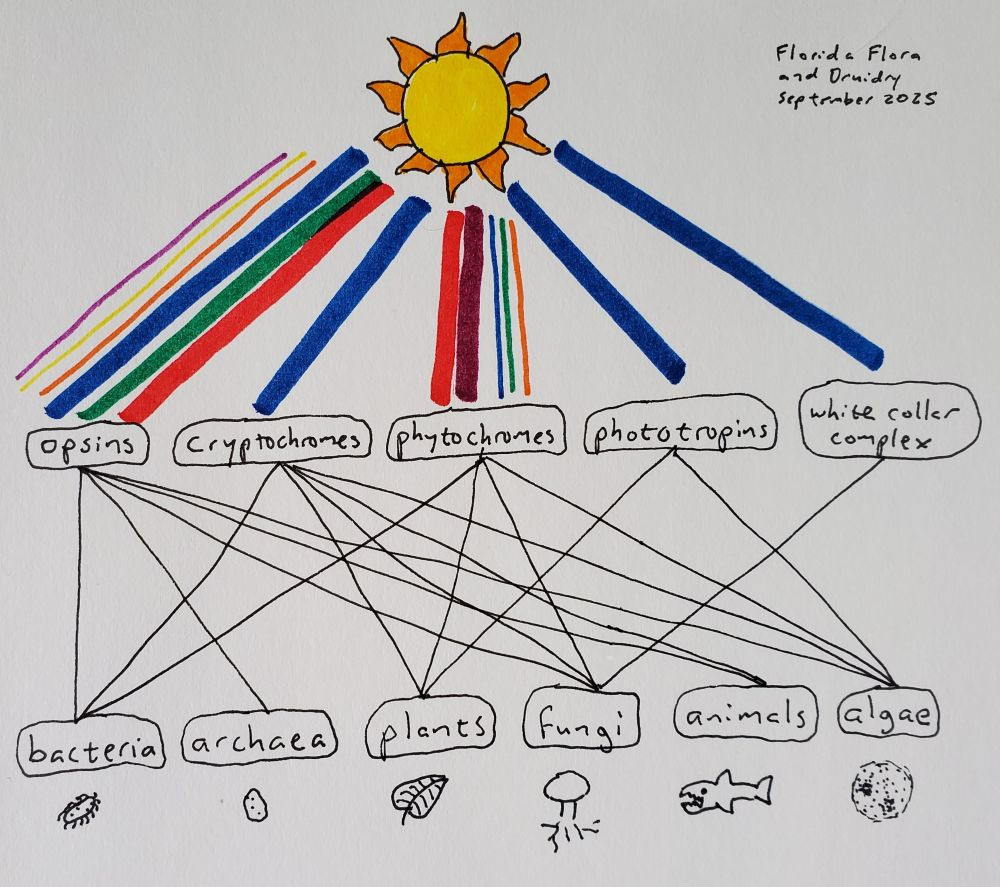 Florida Flora
and Druidry
September 2025
opsins
cryptochromes
phytochromes
phototropins
white collar
complex
bacteria
archaea
plants
fungi
animals
algae